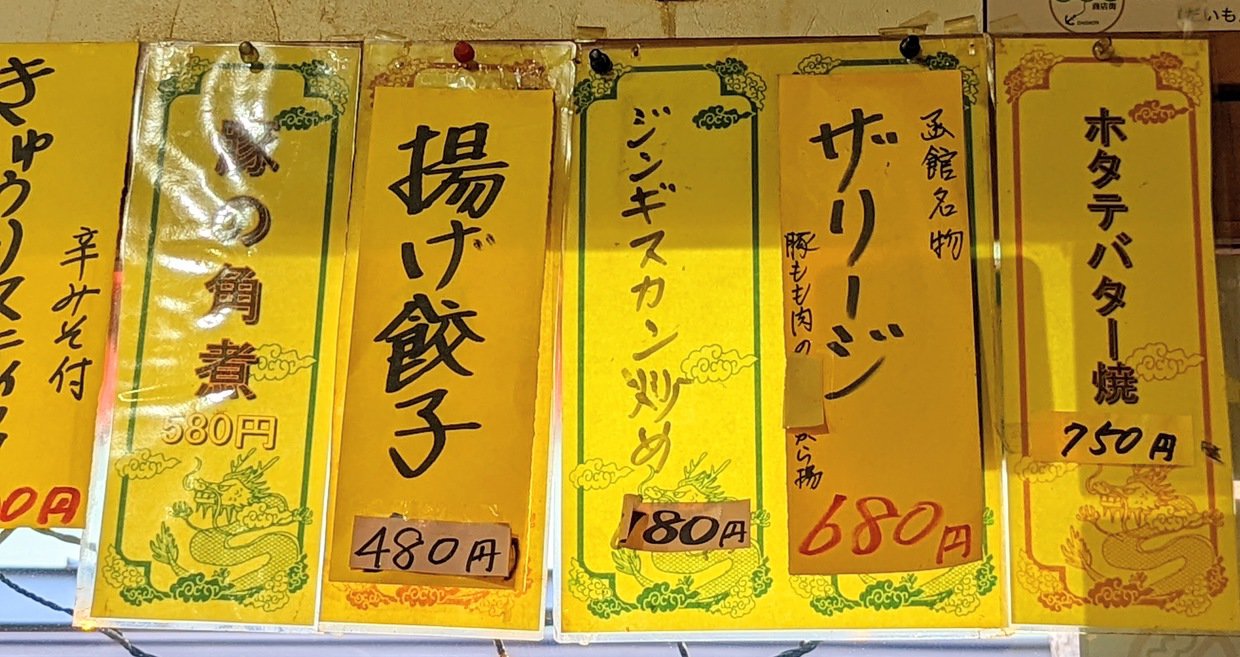 商店街
きゅうりスティック
辛みそ付
0円
豚の角煮
580円
揚げ餃子
480円
ジンギスカン炒め
780円
函館名物
ザリージ
豚もも肉の
から揚
680円
ホタテバター焼
750円